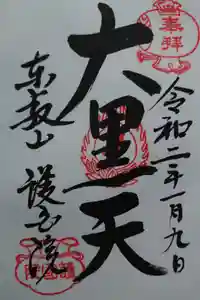 奉拝
令和二年一月九日
大黒天
東叡山 護国院